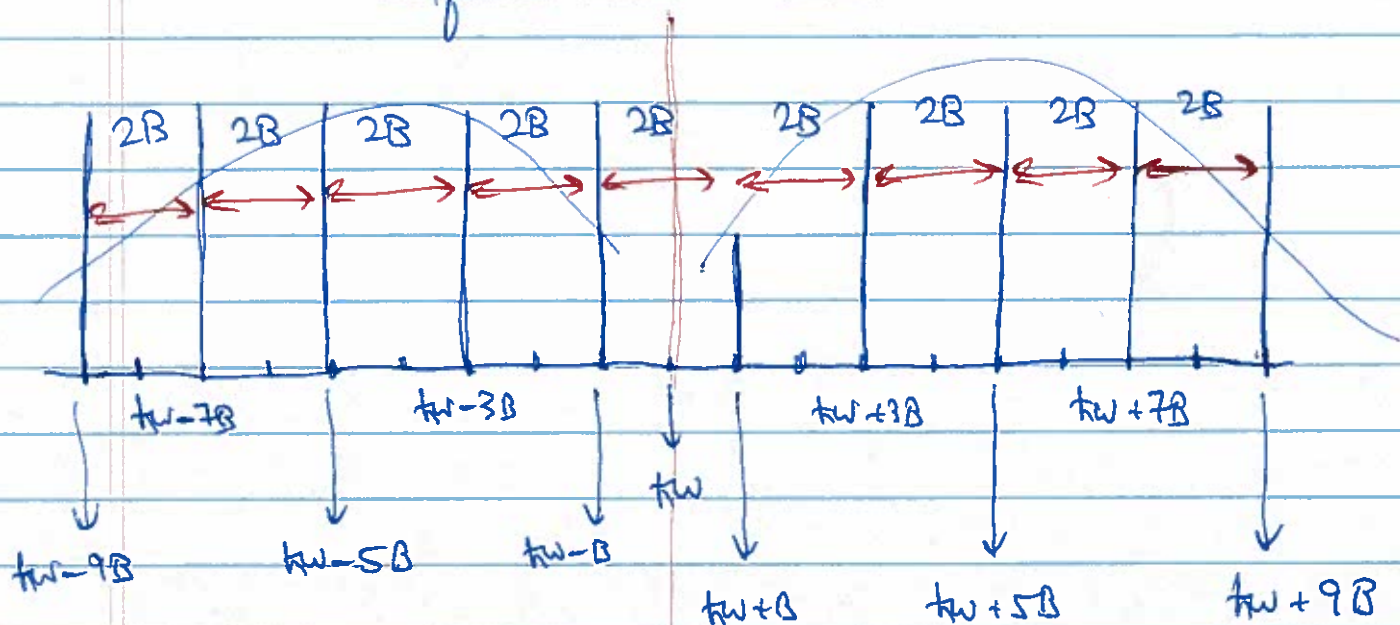 2B 2B 2B 2B 2B 2B 2B 2B 2B
ħω-7B ħω-3B ħω+3B ħω+7B
ħω
ħω-9B ħω-5B ħω-B ħω+B ħω+5B ħω+9B